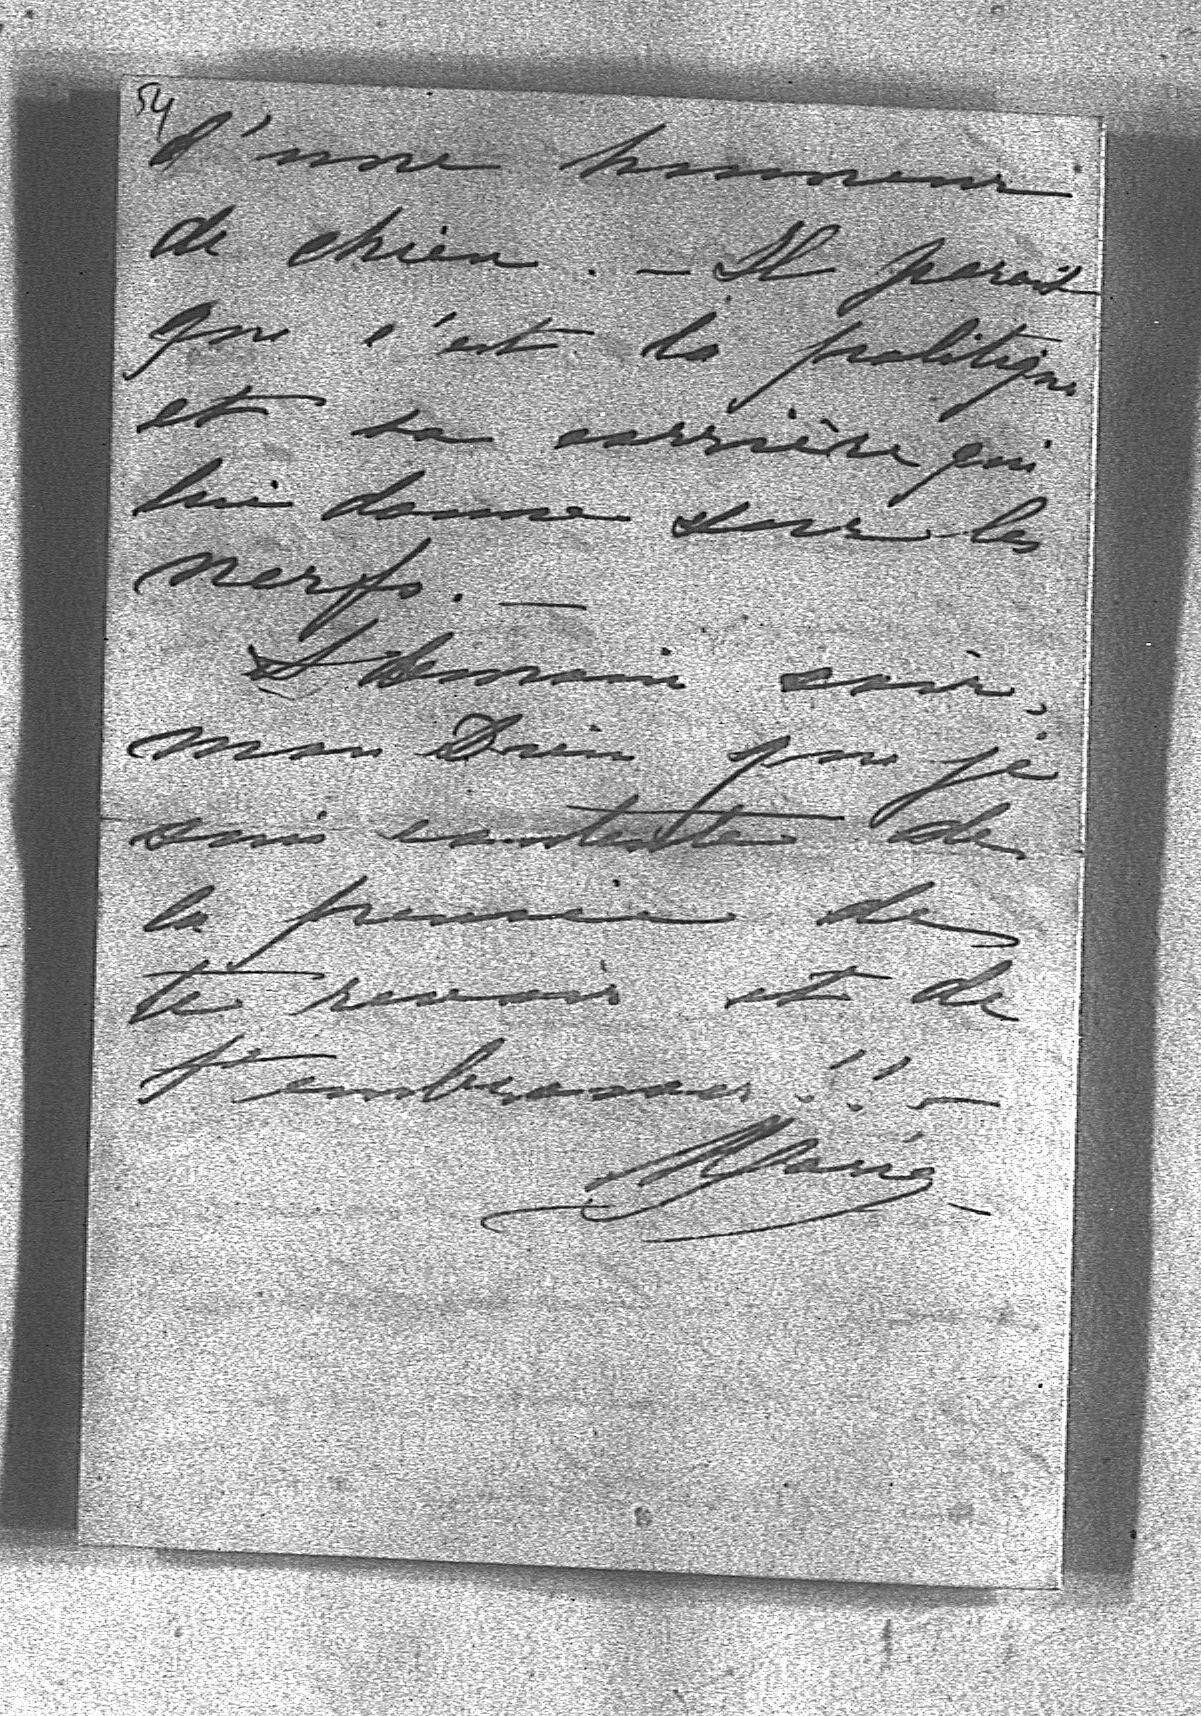 54
d'une humeur
de chien. – Il parait
que c'est la politique
et sa carrière qui
lui donne sur les
nerfs. –
A demain soir,
mon Dieu que je
suis contente de
la pensée de
te revoir et de
t'embrasser!! –
Marie